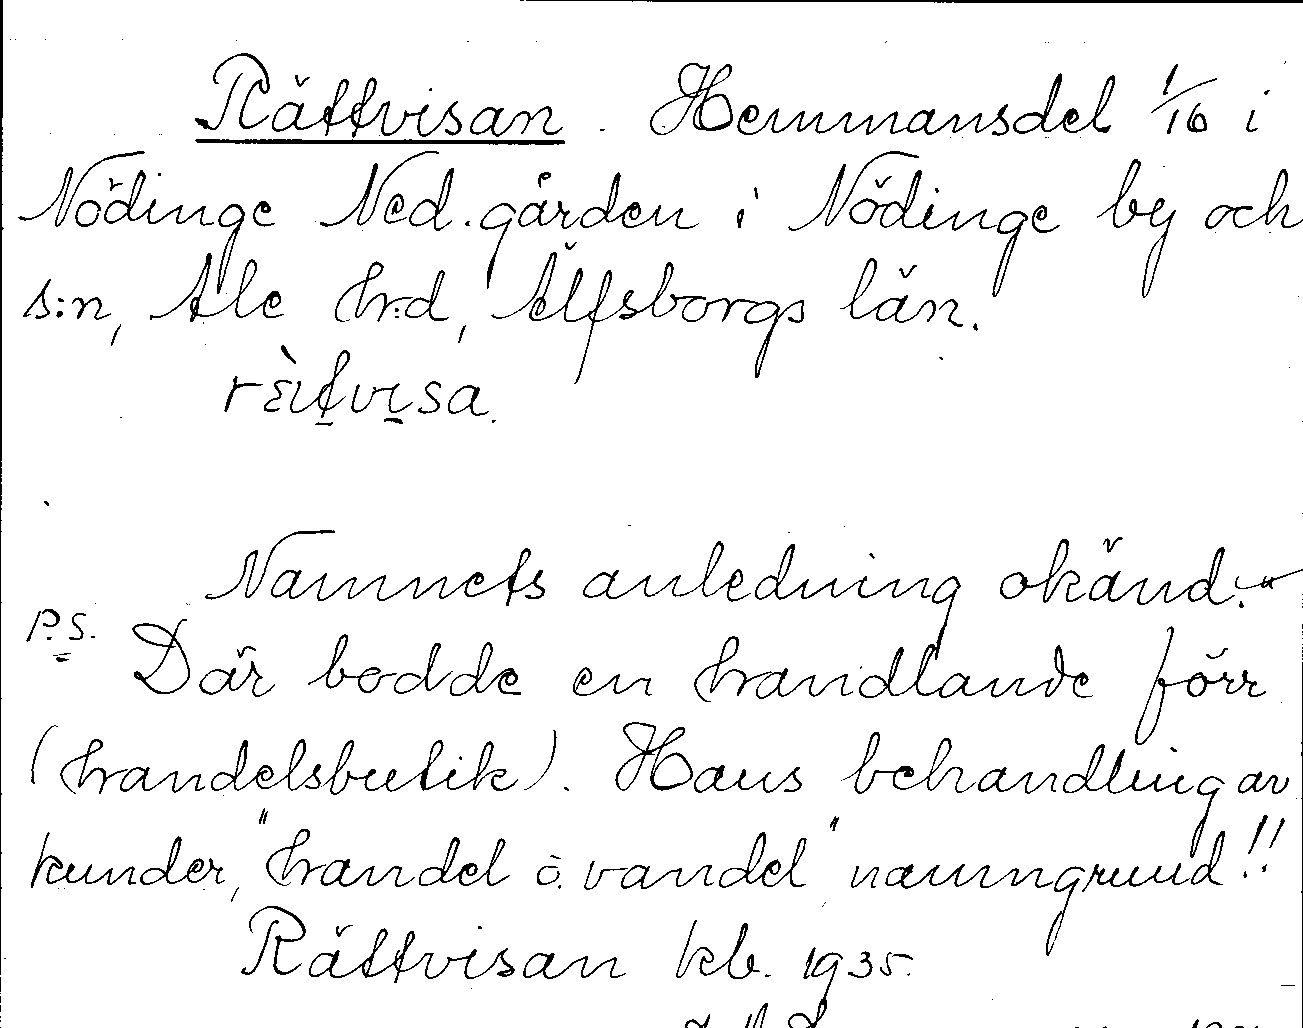 Rättvisan. Hemmansdel 1/16 i
Nödinge Ned.gården i Nödinge by och
s:n, Ale hrd, Älfsborgs län.
Namnets anledning okänd.
P.S. Där bodde en handlande förr
(handelsbutik). Hans behandling av
kunder, "handel o. vandel" namngrund!!
Rättvisan kb. 1935.